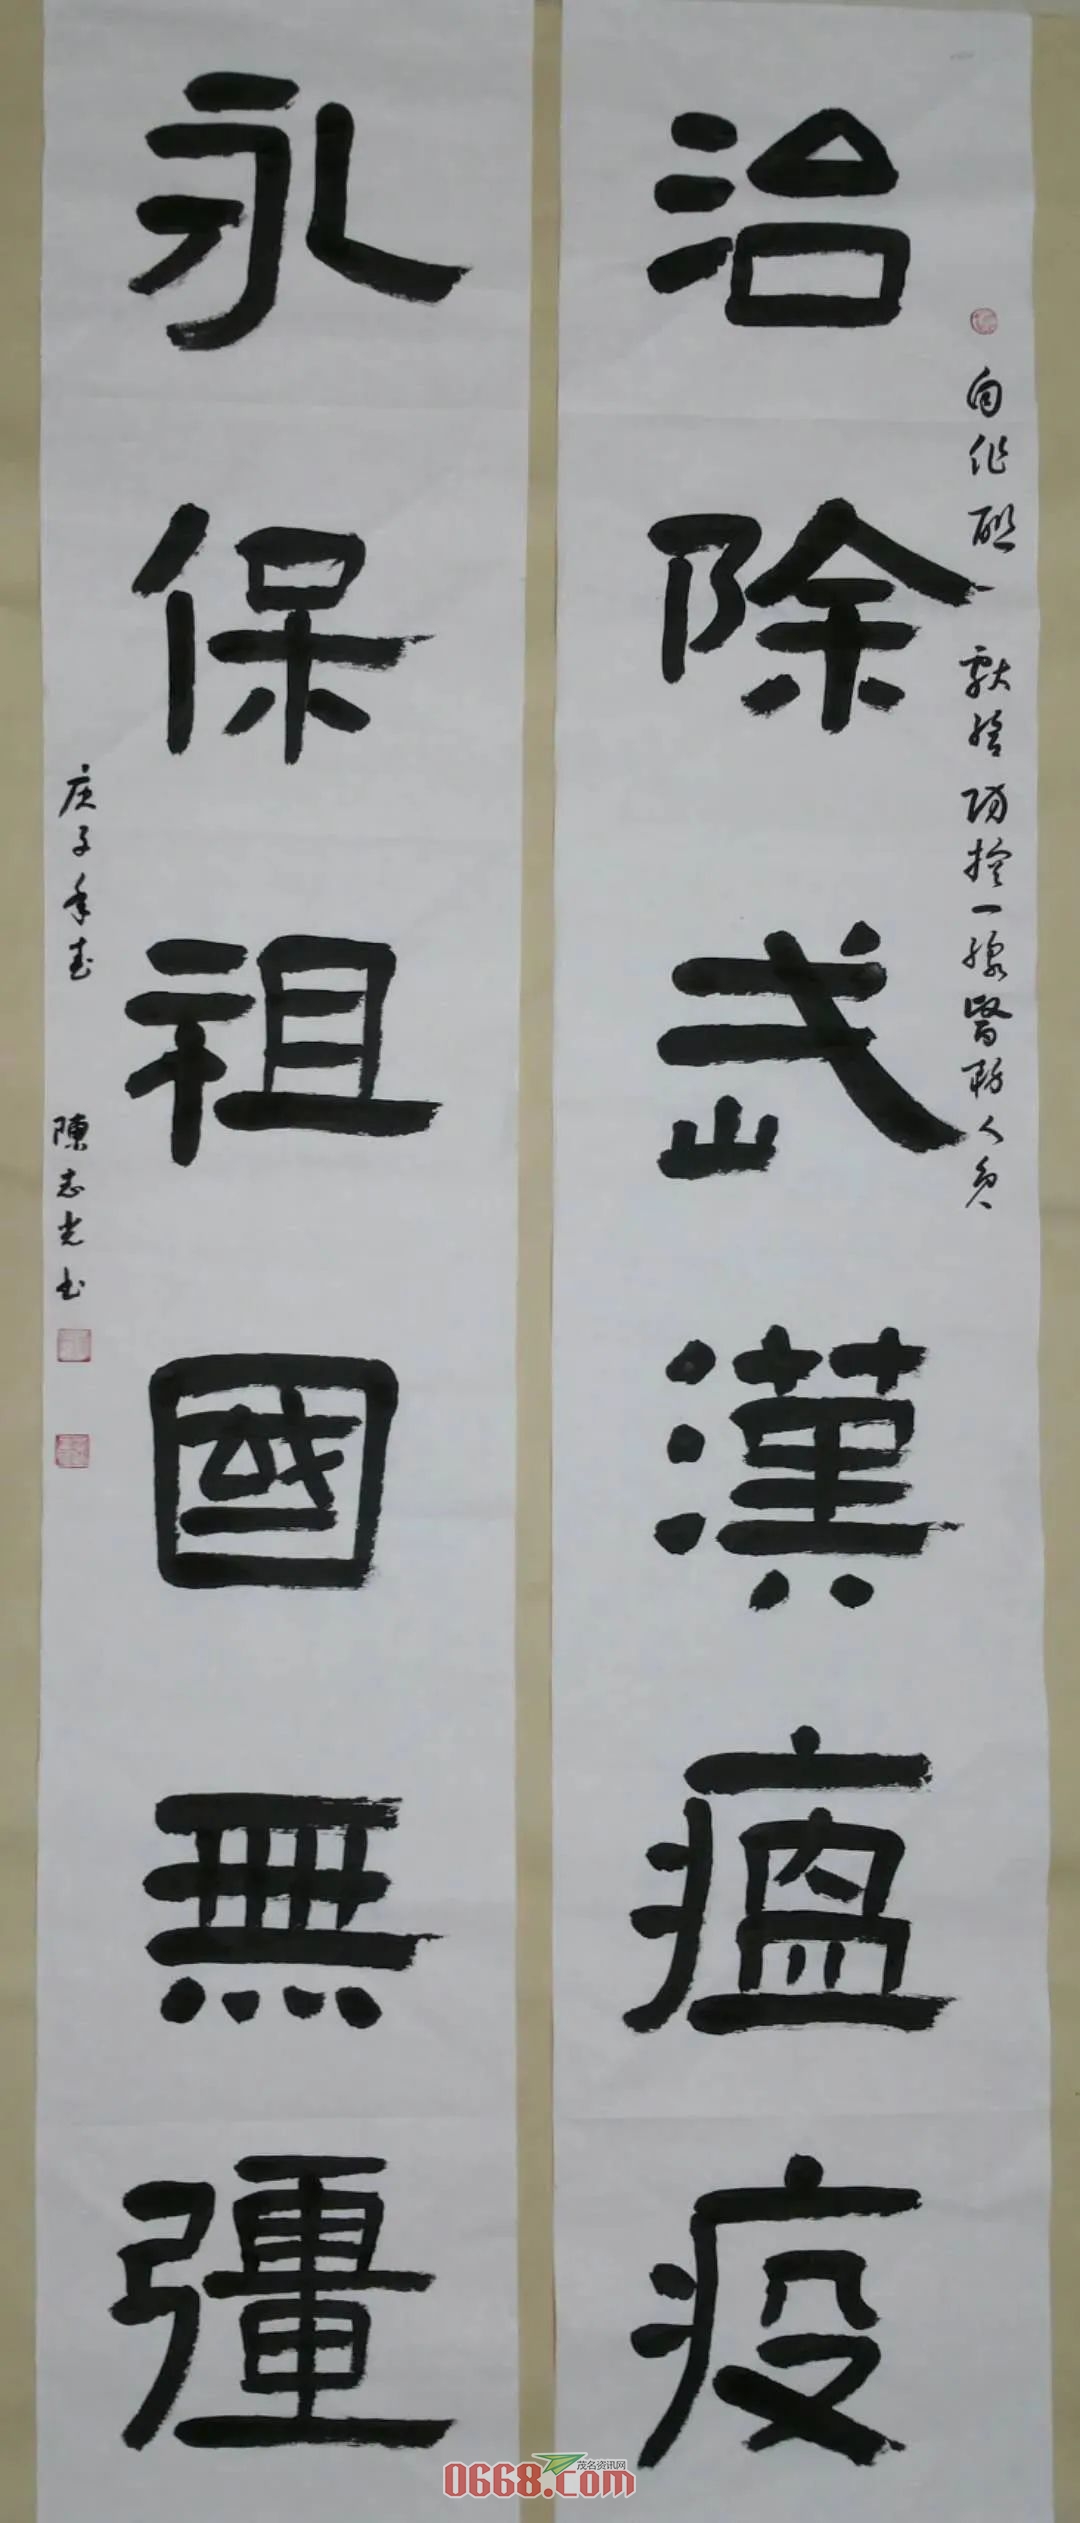 治除武漢瘟疫
自作联 献给防控一線醫務人员
永保祖國無疆
庚子年春 陳志光书
茂名资讯网
0668.com